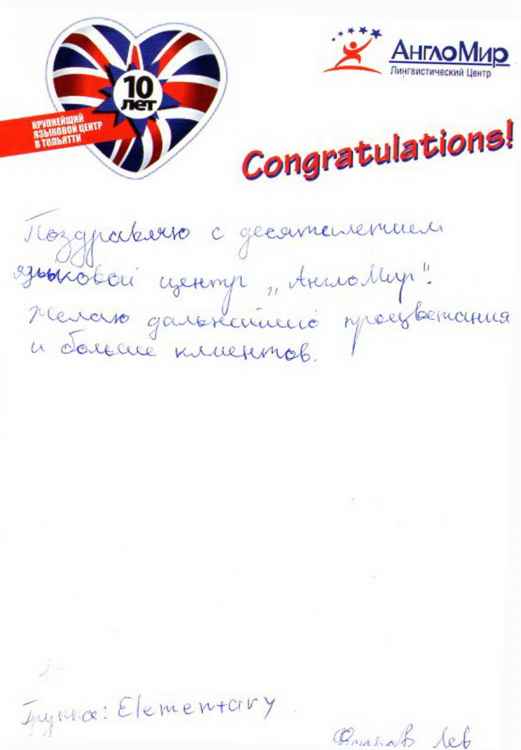 10
лет
КРУПНЕЙШИЙ
ЯЗЫКОВОЙ ЦЕНТР
В ТОЛЬЯТТИ
АнглоМир
Лингвистический Центр
Congratulations!
Поздравляю с десятилетием
языковой центр „АнглоМир".
Желаю дальнейшего процветания
и больше клиентов.
Группа: Elementary
Лев